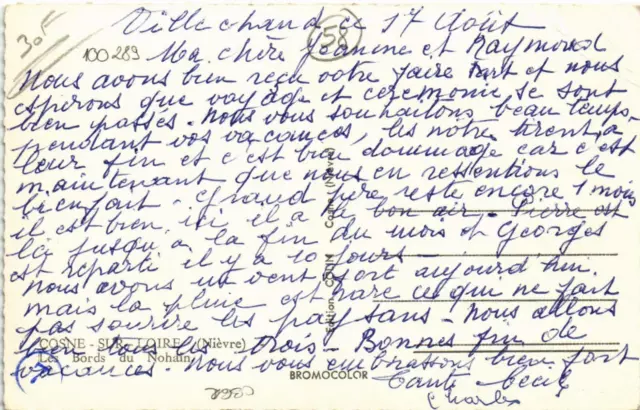 30F
58
100 289
Villechaud ce 17 Août
Ma chère Jeanine et Raymond
nous avons bien reçu votre faire part et nous
espérons que voyage et cérémonie se sont
bien passés - nous vous souhaitons beau temps
pendant vos vacances, les notre tirent à
leur fin et c'est bien dommage car c'est
maintenant que nous en ressentions le
bienfait - grand père reste encore 1 mois
il est bien ici il a le bon air - Pierre est
là jusqu'à la fin du mois et Georges
est reparti il y a 10 jours -
nous avons un vent fort aujourd'hui.
mais la pluie est rare ce qui ne fait
pas sourire les paysans - nous allons
tous les trois - Bonnes fin de
vacances - nous vous embrassons bien fort
Tante Cécile
Charles
COSNE - SUR - LOIRE (Nièvre)
Les Bords du Nohain
Edition COUIN Cosne (Nièvre)
BROMOCOLOR